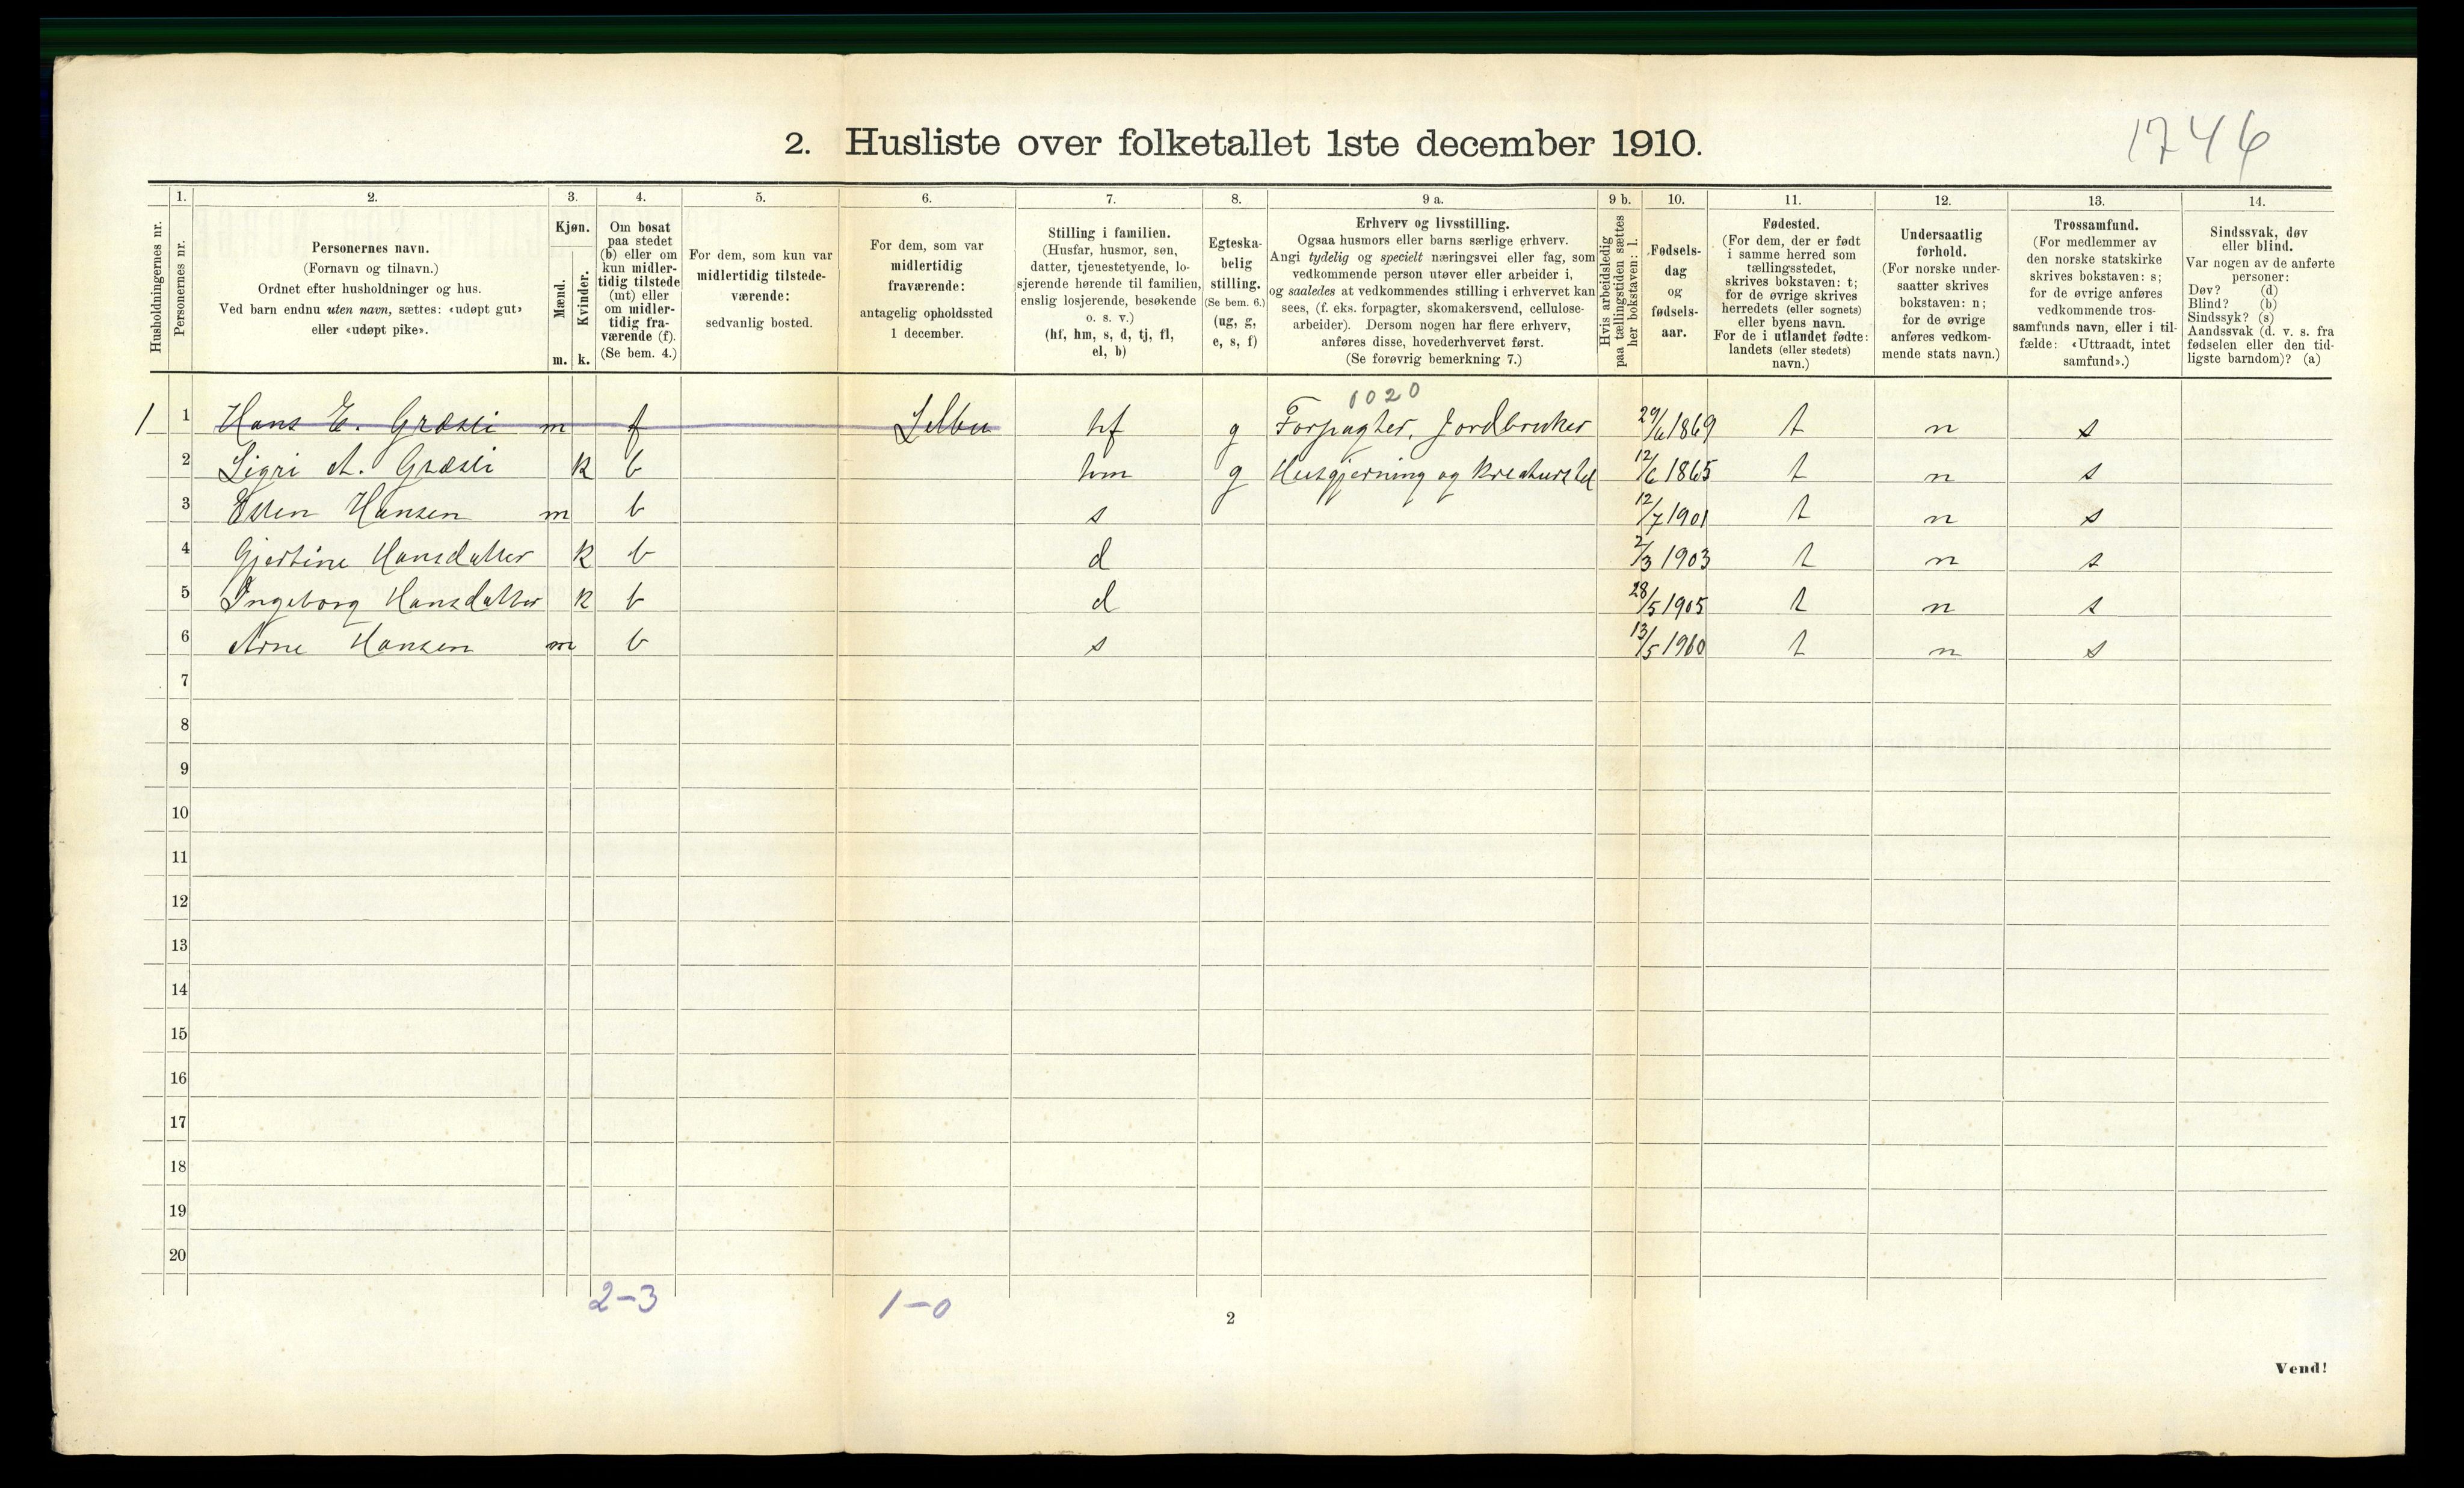 1746
2. Husliste over folketallet 1ste december 1910.
Husholdningernes nr.
1. Personernes nr.
2. Personernes navn. (Fornavn og tilnavn.) Ordnet efter husholdninger og hus. Ved barn endnu uten navn, sættes: «udøpt gut» eller «udøpt pike».
3. Kjøn. Mænd. m. Kvinder. k.
4. Om bosat paa stedet (b) eller om kun midlertidig tilstede (mt) eller om midlertidig fraværende (f). (Se bem. 4.)
5. For dem, som kun var midlertidig tilstedeværende: sedvanlig bosted.
6. For dem, som var midlertidig fraværende: antagelig opholdssted 1 december.
7. Stilling i familien. (Husfar, husmor, søn, datter, tjenestetyende, losjerende hørende til familien, enslig losjerende, besøkende o. s. v.) (hf, hm, s, d, tj, fl, el, b)
8. Egteskabelig stilling. (Se bem. 6.) (ug, g, e, s, f)
9 a. Erhverv og livsstilling. Ogsaa husmors eller barns særlige erhverv. Angi tydelig og specielt næringsvei eller fag, som vedkommende person utøver eller arbeider i, og saaledes at vedkommendes stilling i erhvervet kan sees, (f. eks. forpagter, skomakersvend, cellulosearbeider). Dersom nogen har flere erhverv, anføres disse, hovederhvervet først. (Se forøvrig bemerkning 7.)
9 b. Hvis arbeidsledig paa tællingstiden sættes her bokstaven: l.
10. Fødselsdag og fødselsaar.
11. Fødested. (For dem, der er født i samme herred som tællingsstedet, skrives bokstaven: t; for de øvrige skrives herredets (eller sognets) eller byens navn. For de i utlandet fødte: landets (eller stedets) navn.)
12. Undersaatlig forhold. (For norske undersaatter skrives bokstaven: n; for de øvrige anføres vedkommende stats navn.)
13. Trossamfund. (For medlemmer av den norske statskirke skrives bokstaven: s; for de øvrige anføres vedkommende trossamfunds navn, eller i tilfælde: «Uttraadt, intet samfund».)
14. Sindssvak, døv eller blind. Var nogen av de anførte personer: Døv? (d) Blind? (b) Sindssyk? (s) Aandssvak (d. v. s. fra fødselen eller den tidligste barndom)? (a)
1020
1 1 Hans E. Græsli m f Selbu hf g Forpagter, Jordbruker 29/6 1869 t n s
2 Sigri A. Græsli k b hm g Husgjerning og Kreaturstel 12/6 1865 t n s
3 Esten Hansen m b s 12/7 1901 t n s
4 Gjertine Hansdatter k b d 2/3 1903 t n s
5 Ingeborg Hansdatter k b d 28/5 1905 t n s
6 Arne Hansen m b s 13/5 1910 t n s
7
8
9
10
11
12
13
14
15
16
17
18
19
20
2-3 1-0
2
Vend!